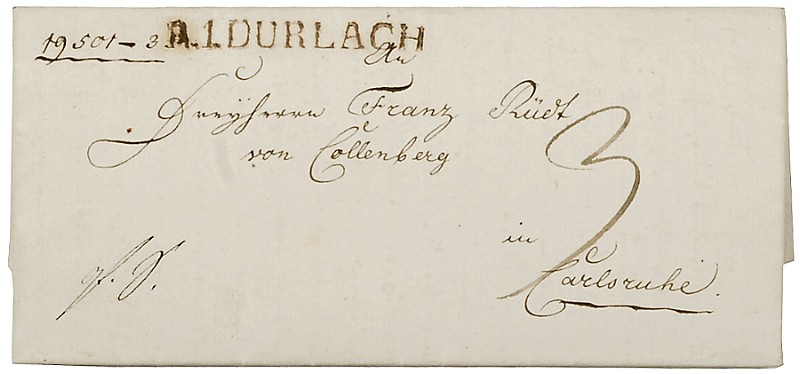 19501-3 R.1.DURLACH
An
Freyherrn Franz Rüdt
von Collenberg
3
in
Carlsruhe.